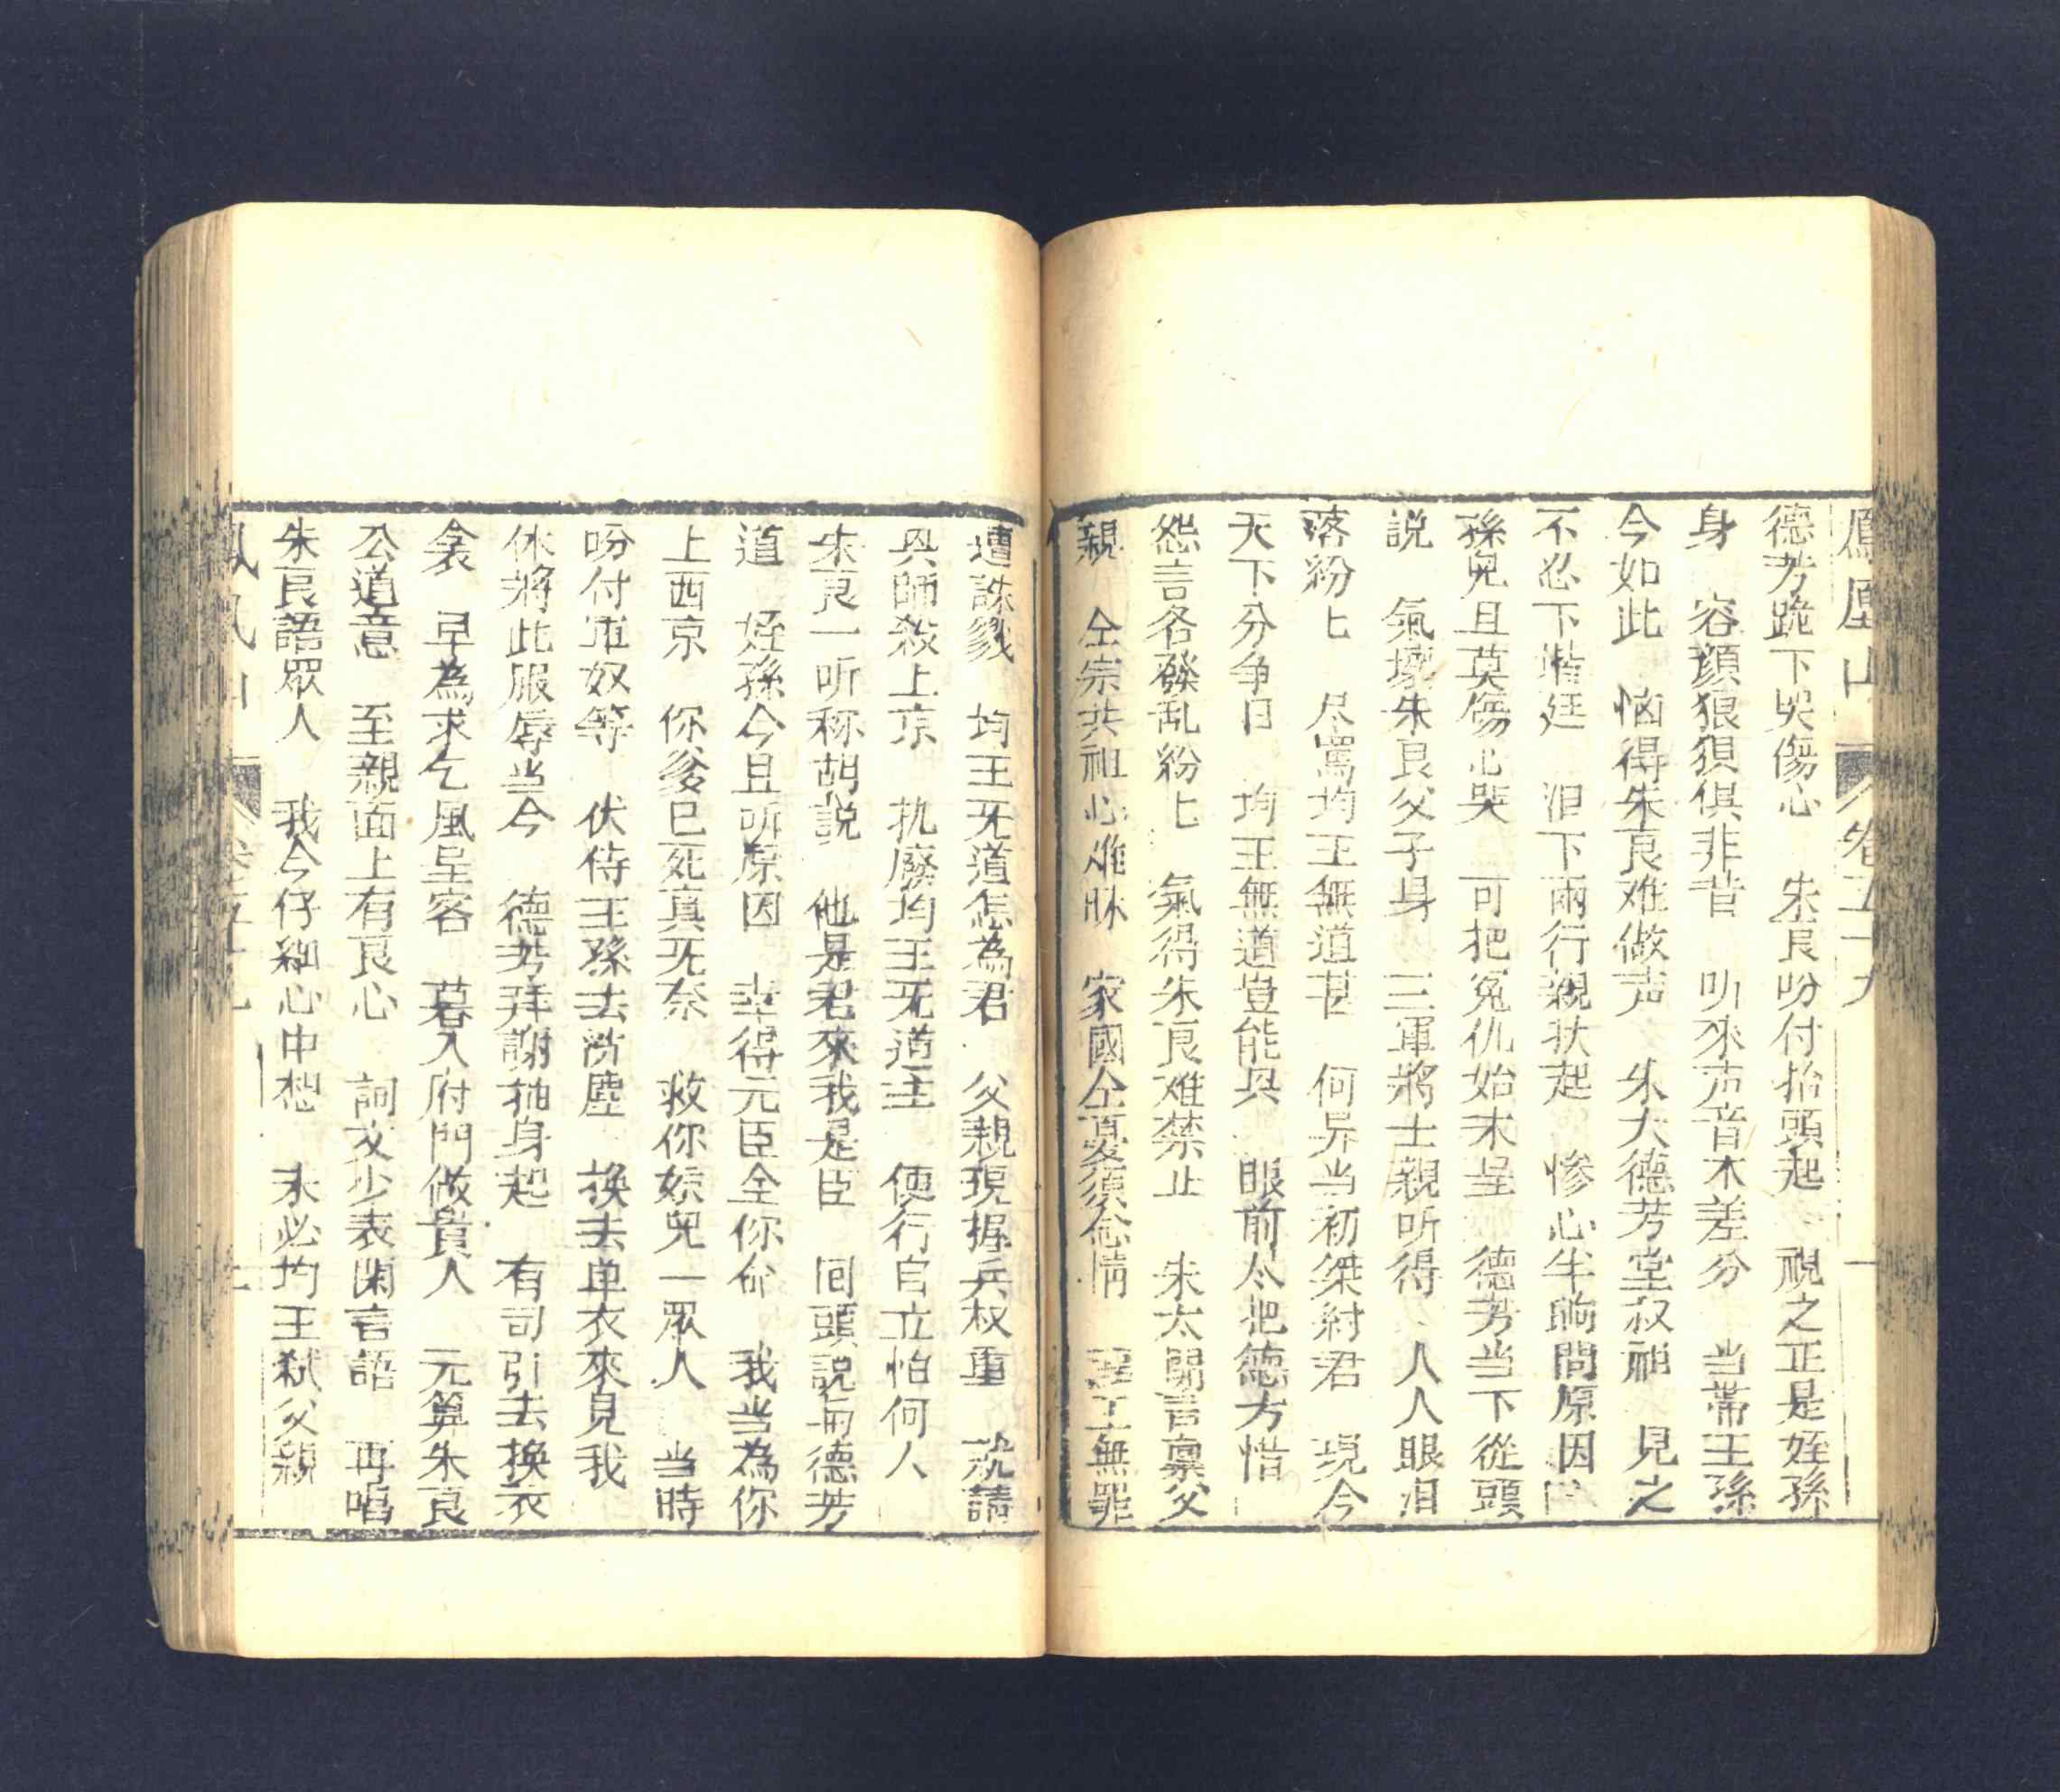 鳳凰山 卷五十九 一
德芳跪下哭傷心 朱良吩付抬頭起 視之正是姪孫
身 容顔狠狽俱非昔 听來声音木差分 当帯王孫
今如此 恼得朱良难做声 朱大德芳堂叔祖 見之
不忍下堦廷 泪下兩行親扶起 惨心半晌問原因
孫兒且莫傷心哭 可把冤仇始末呈 德芳当下從頭
説 氣壞朱良父子身 三軍將士親听得 人人眼泪
落紛匕 尽罵均王無道甚 何异当初桀紂君 現今
天下分争日 均王無道豈能具 眼前尽把德方惜
怨言各發乱紛匕 氣得朱良难禁止 朱太開言禀父
親 仝宗共祖心难昧 家國仝憂須念情 無罪
遭誅戮 均王无道怎為君 父親現握兵权重 就請
具師殺上京 执廢均王无道主 便行自立怕何人
朱良一听称胡説 他是君來我是臣 囘頭説与德芳
道 姪孫今且听原因 幸得元臣全你命 我当為你
上西京 你爹已死真无奈 救你娘兒一眾人 当時
吩付軍奴等 伏侍王孫去洗塵 換去单衣來見我
休將此服辱当今 德芳拜謝抽身起 有司引去換衣
衾 早為求乞風呈客 暮入府門做貴人 元算朱良
公道意 至親面上有良心 詞文少表閑言語 再唱
朱良語眾人 我今仔細心中想 未必均王弒父親